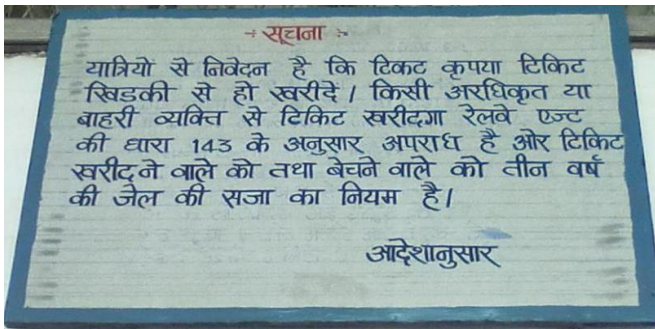 ÷ सूचना ÷
यात्रियो से निवेदन है कि टिकट कृपया टिकिट
खिडकी से हो खरीदें। किसी अरधिकृत या
बाहरी व्यक्ति से टिकिट खरीदगा रेलवे एज्ट
की धारा 143 के अनुसार अपराध है ओर टिकिट
खरीदने वाले को तथा बेचने वाले को तीन वर्ष
की जेल की सजा का नियम है।
आदेशानुसार